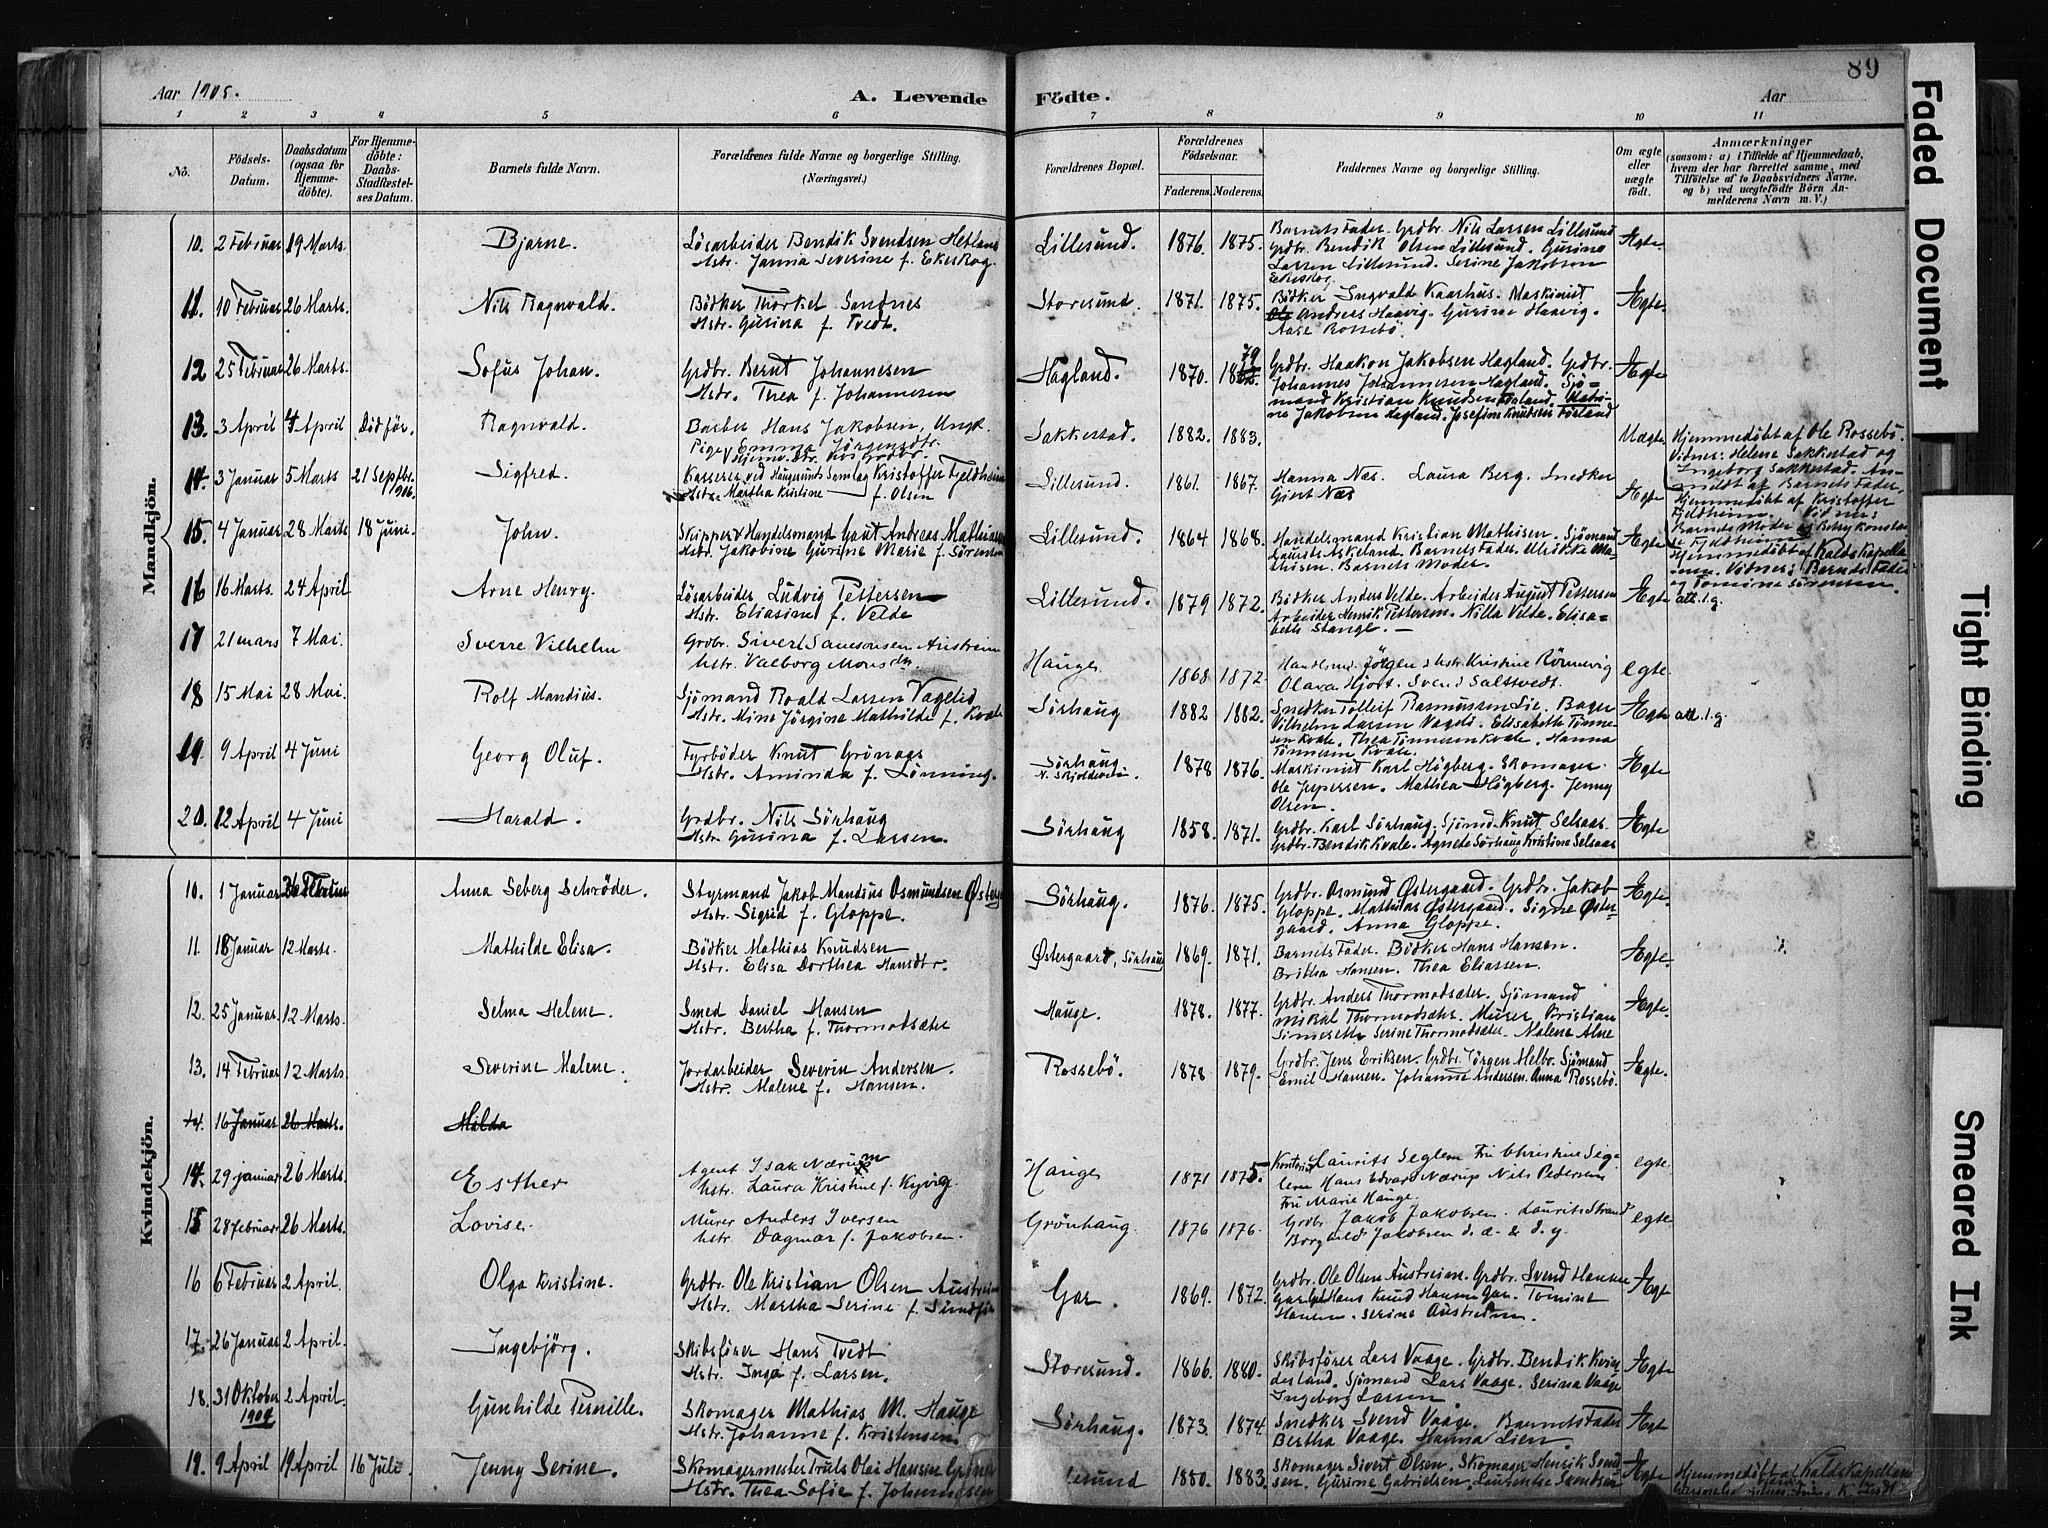 89
Aar 1905.
A. Levende Födte.
Aar
1 2 3 4 5 6 7 8 9 10 11
No.
Födsels-Datum.
Daabsdatum (ogsaa for Hjemmedöbte).
For Hjemmedöbte: Daabs-Stadfæstelses Datum.
Barnets fulde Navn.
Forældrenes fulde Navne og borgerlige Stilling. (Næringsvei.)
Forældrenes Bopæl.
Forældrenes Födselsaar.
Faderens. Moderens.
Faddernes Navne og borgerlige Stilling.
Om ægte eller uægte födt.
Anmærkninger
(saasom: a) i Tilfælde af Hjemmedaab, hvem der har forrettet samme, med Tilföielse af to Daabsvidners Navne, og b) ved uægtefödte Börn Anmelderens Navn m. V.)
Mandkjön.
10. 2 Februar 19 Marts. Bjarne. Lösarbeider Bendik Svendsen Hetland
Hstr. Janna Severine f. Ekeskog. Lillesund. 1876. 1875. Barnets Fader. Grdbr. Nils Larsen Lillesund
Grdbr. Bendik Olsen Lillesund. Gurine
Larsen Lillesund. Serine Jakobsen
Ekeskog Ægte
11. 10 Februar 26 Marts. Nils Ragnvald. Bödker Thorkel Sandnes
Hstr. Gurina f. Tvedt. Storesund. 1871. 1875. Bödker Ingvald Kaarhus. Maskinist
Andreas Haavig. Gurine Haavig.
Aase Rossebö. Ægte
12 25 Februar 26 Marts. Sofus Johan. Grdbr. Bernt Johannesen
Hstr. Thea f. Johannesen Hagland. 1870. 1879 Grdbr. Haakon Jakobsen Hagland. Grdbr.
Johannes Johannesen Hagland. Sjö=
mand Kristian Knudsen Förland.
Jakobsen Hagland. Josefine Knudsen Förland Ægte
13. 3 April 4 April Död för. Ragnvald. Barber Hans Jakobsen, Ungk.
Pige Emma Jörgensdtr. Sakkestad. 1882. 1883. Uægte Hjemmedöbt af Ole Rossebö.
Vidner: Helene Sakkestad og
Ingeborg Sakkestad. An-
meldt af Barnets Fader.
14. 3 Januar 5 Marts 21 Septbr. 1906. Sigfred. Kasserer ved Haugesunds Samlag Kristoffer Fjeldheim
Hstr. Martha Kristine f. Olsen Lillesund. 1861. 1867. Hanna Næs. Laura Berg. Snedker
Gjert Næs Ægte Hjemmedöbt af Kristoffer
Fjeldheim. Vidner:
Barnets Moder
Fjeldheim
15. 4 Januar 28 Marts 18 Juni. John. Skipper & Handelsmand Gaut Andreas Mathisen
Hstr. Jakobine Gurine Marie f. Sörensen Lillesund. 1864 1868. Handelsmand Kristian Mathisen. Sjömand
Laurits Askeland. Barnets Fader. Ulrikke Ma-
thisen. Barnets Moder. Ægte Hjemmedöbt af Kaldskapella
nen. Vidner: Barnets Fader
og Tomine Sörensen.
16 16 Marts. 24 April Arne Henry. Lösarbeider Ludvig Pettersen
Hstr. Eliasine f. Velde Lillesund. 1879 1872. Bödker Anders Velde. Arbeider August Pettersen
Arbeider Henrik Pettersen. Nilla Velde. Elisa=
beth Stange. Ægte att. l. g.
17 21 mars 7 Mai. Sverre Vilhelm Grdbr. Sivert Samsonsen Austreim
hstr. Valborg Monsdtr. Hauge 1868 1872 Handlsmd. Jörgen & hstr Kristine Rönnevig
Olava Hjort. Svend Saltvedt. egte
18 15 Mai 28 Mai. Rolf Mandius. Sjömand Roald Larsen Vageled
Hstr. Mine Jörgine Mathilde f. Kvale Sörhaug 1882 1882. Snedker Tollef Rasmussen Lie. Bager
Vilhelm Larsen Vageld. Elisabeth Tönne-
sen Kvale. Thea Tönnesen Kvale. Hanna
Tönnesen Kvale. Ægte att. l. g.
19. 9 April 4 Juni Georg Oluf. Fyrböder Knut Grönaas
Hstr. Aminda f. Lönning. Sörhaug
N. Skjoldevei. 1878 1876. Maskinist Karl Högberg. Skomager
Ole Jespersen. Mathea Högberg. Jenny
Olsen. Ægte
20. 12 April 4 Juni Harald. Grdbr. Nils Sörhaug
Hstr. Gurina f. Larsen. Sörhaug 1858. 1871. Grdbr. Karl Sörhaug. Sjömd. Knut Selsaas.
Grdbr. Bendik Kvale. Agnete Sörhaug Kristine Selsaas Ægte
Kvindekjön.
10. 1 Januar 26 Februar Anna Seberg Schröder. Styrmand Jakob Mandius Osmundsen
Hstr. Sigrid f. Gloppe. Sörhaug. 1876. 1875. Grdbr. Osmund Østergaard. Grdbr. Jakob
Gloppe. Mathias Østergaard. Signe Øster-
gaard. Anna Gloppe. Ægte.
11. 18 Januar 12 Marts. Mathilde Elisa. Bödker Mathias Knudsen
Hstr. Elisa Dorthea Hansdtr. Østergaard, Sörhaug 1869. 1871. Barnets Fader. Bödker Hans Hansen.
Britha Hansen. Thea Eliassen. Ægte.
12. 25 Januar 12 Marts. Selma Helene. Smed Daniel Hansen
Hstr. Bertha f. Thormodsæter Hauge. 1878. 1877. Grdbr. Anders Thormodsæter. Sjömand
Mikal Thormodsæter. Murer Kristian
Simeseth Serine Thormodsæter. Malene Alne Ægte.
13. 14 Februar 12 Marts. Severine Malene. Jordarbeider Severin Andersen.
Hstr. Malene f. Hansen. Rossebö. 1878 1879. Grdbr. Jens Eriksen. Grdbr. Jörgen Helbo. Sjömand
Emil Hansen. Johanna Andersen. Anna Rossebö. Ægte.
14. 16 Januar 26 Marts. Hilda
14. 29 januar 26 Marts. Esther Agent Isak Nærum
hstr. Laura Kristine f. Kyvig. Hauge 1871 1875 Kontorist Laurits Seglem Fru Christine Seg-
lem Hans Edvard Nærup Nils Pedersen
Fru Marie Hauge. egte
15 28 Februar 26 Marts. Lovise. Murer Anders Iversen
hstr. Dagmar f. Jakobsen. Grönhaug 1876 1876. Grdbr. Jakob Jakobsen. Laurits Strand
Borghild Jakobsen d. æ. & d. y. egte
16 6 Februar 2 April. Olga Kristine. Grdbr. Ole Kristian Olsen Austreim
Hstr. Martha Serine f. Sundför Gar. 1869. 1872. Grdbr. Ole Olsen Austreim. Grdbr. Svend Hansen
Gar. Hans Knud Hansen Gar. Tomine
Hansen. Serine Austreim. Ægt
17. 26 Januar 2 April. Ingebjörg. Skibsförer Hans Tvedt
Hstr. Inga f. Larsen. Storesund. 1866. 1880. Skibsförer Lars Vaage. Grdbr. Bendik Kvin-
desland. Sjömand Lars Vaage. Serina Vaage
Ingeborg Larsen. Ægte
18. 31 Oktober 1904 2 April. Gunhilde Pernille. Skomager Mathias M. Hauge
Hstr. Johanne f. Kristensen. Sörhaug. 1873. 1874. Snedker Svend Vaage. Barnets Fader
Bertha Vaage. Hanna Lien. Ægte
19. 9 April 19 April 16 Juli. Jenny Serine. Skomagermester Truls Olai Hansen
Hstr. Thea Sofie f. Johannesen 1850. 1883. Skomager Sivert Olsen. Skomager Henrik Svend
sen. Gurine Gabrielsen. Laurentse Svendsen Ægte Hjemmedöbt af Kaldskapellan
Faded Document
Tight Binding
Smeared Ink